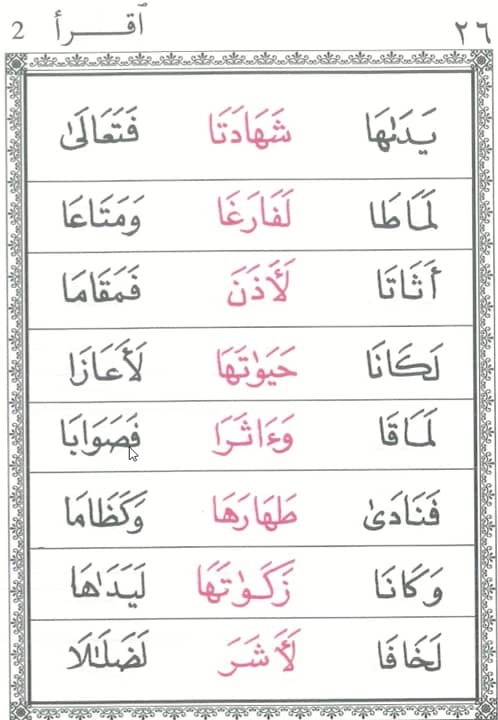 ٢٦ ٱقــــرأ 2
يَدَىٰهَا شَهَادَتَا فَتَعَالَىٰ
لَمَاطَا لَفَارَغَا وَمَتَاعَا
أَثَاتَا لَأَذَنَ فَمَقَامَا
لَكَانَا حَيَوٰتَهَا لَأَعَازَا
لَمَاقَا وَءَاثَرَا فَصَوَابَا
فَنَادَىٰ طَهَارَهَا وَكَظَامَا
وَكَانَا زَكَوٰتَهَا لَيَدَاهَا
لَخَافَا لَأَشَرَ لَضَلَـٰلَا